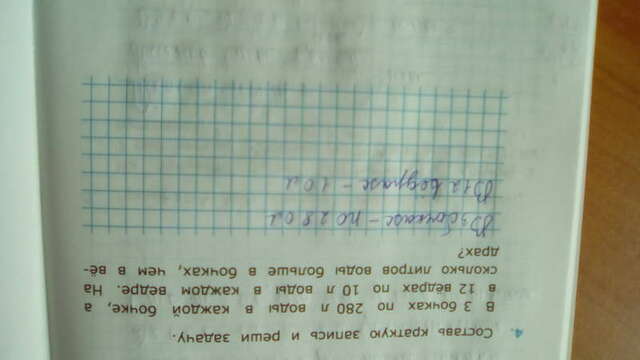 4. Составь краткую запись и реши задачу.
В 3 бочках по 280 л воды в каждой бочке, а
в 12 вёдрах по 10 л воды в каждом ведре. На
сколько литров воды больше в бочках, чем в вё-
драх?
В 3 бочках - по 280 л
В 12 ведрах - 10 л